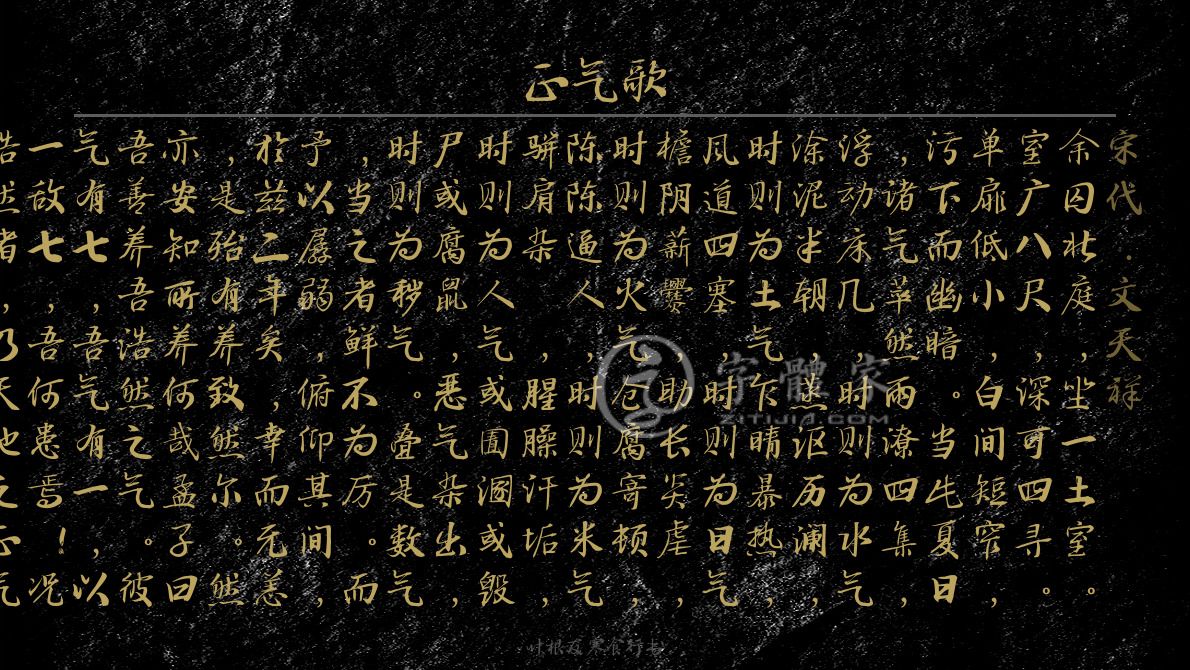 正气歌
宋代·文天祥
余囚北庭，坐一土室。
室广八尺，深可四寻。
单扉低小，白间短窄，
污下而幽暗。当此夏日
，诸气萃然雨潦四集，
浮动床几，时则为水气
涂泥半朝，蒸沤历澜，
时则为土气，乍晴暴热，
风道四塞，时则为日气
檐阴薪爨，助长炎虐，
时则为火气，仓腐寄顿，
陈陈逼人，时则为米气
骈肩杂，腥臊汗垢，
时则为人气或圊溷或毁
尸或腐鼠，恶气杂出，
时则为秽气。叠是数气
，当之者鲜不为厉。而
予以孱弱，俯仰其间，
於兹二年矣，幸而无恙
，是殆有养致然尔。然
亦安知所养何哉孟子曰
吾善养吾浩然之气。彼
气有七，吾气有一，以
一敌七，吾何患焉！况
浩然者，乃天地之正气
字體家
ZITIJIA.COM
叶根友寒食行书